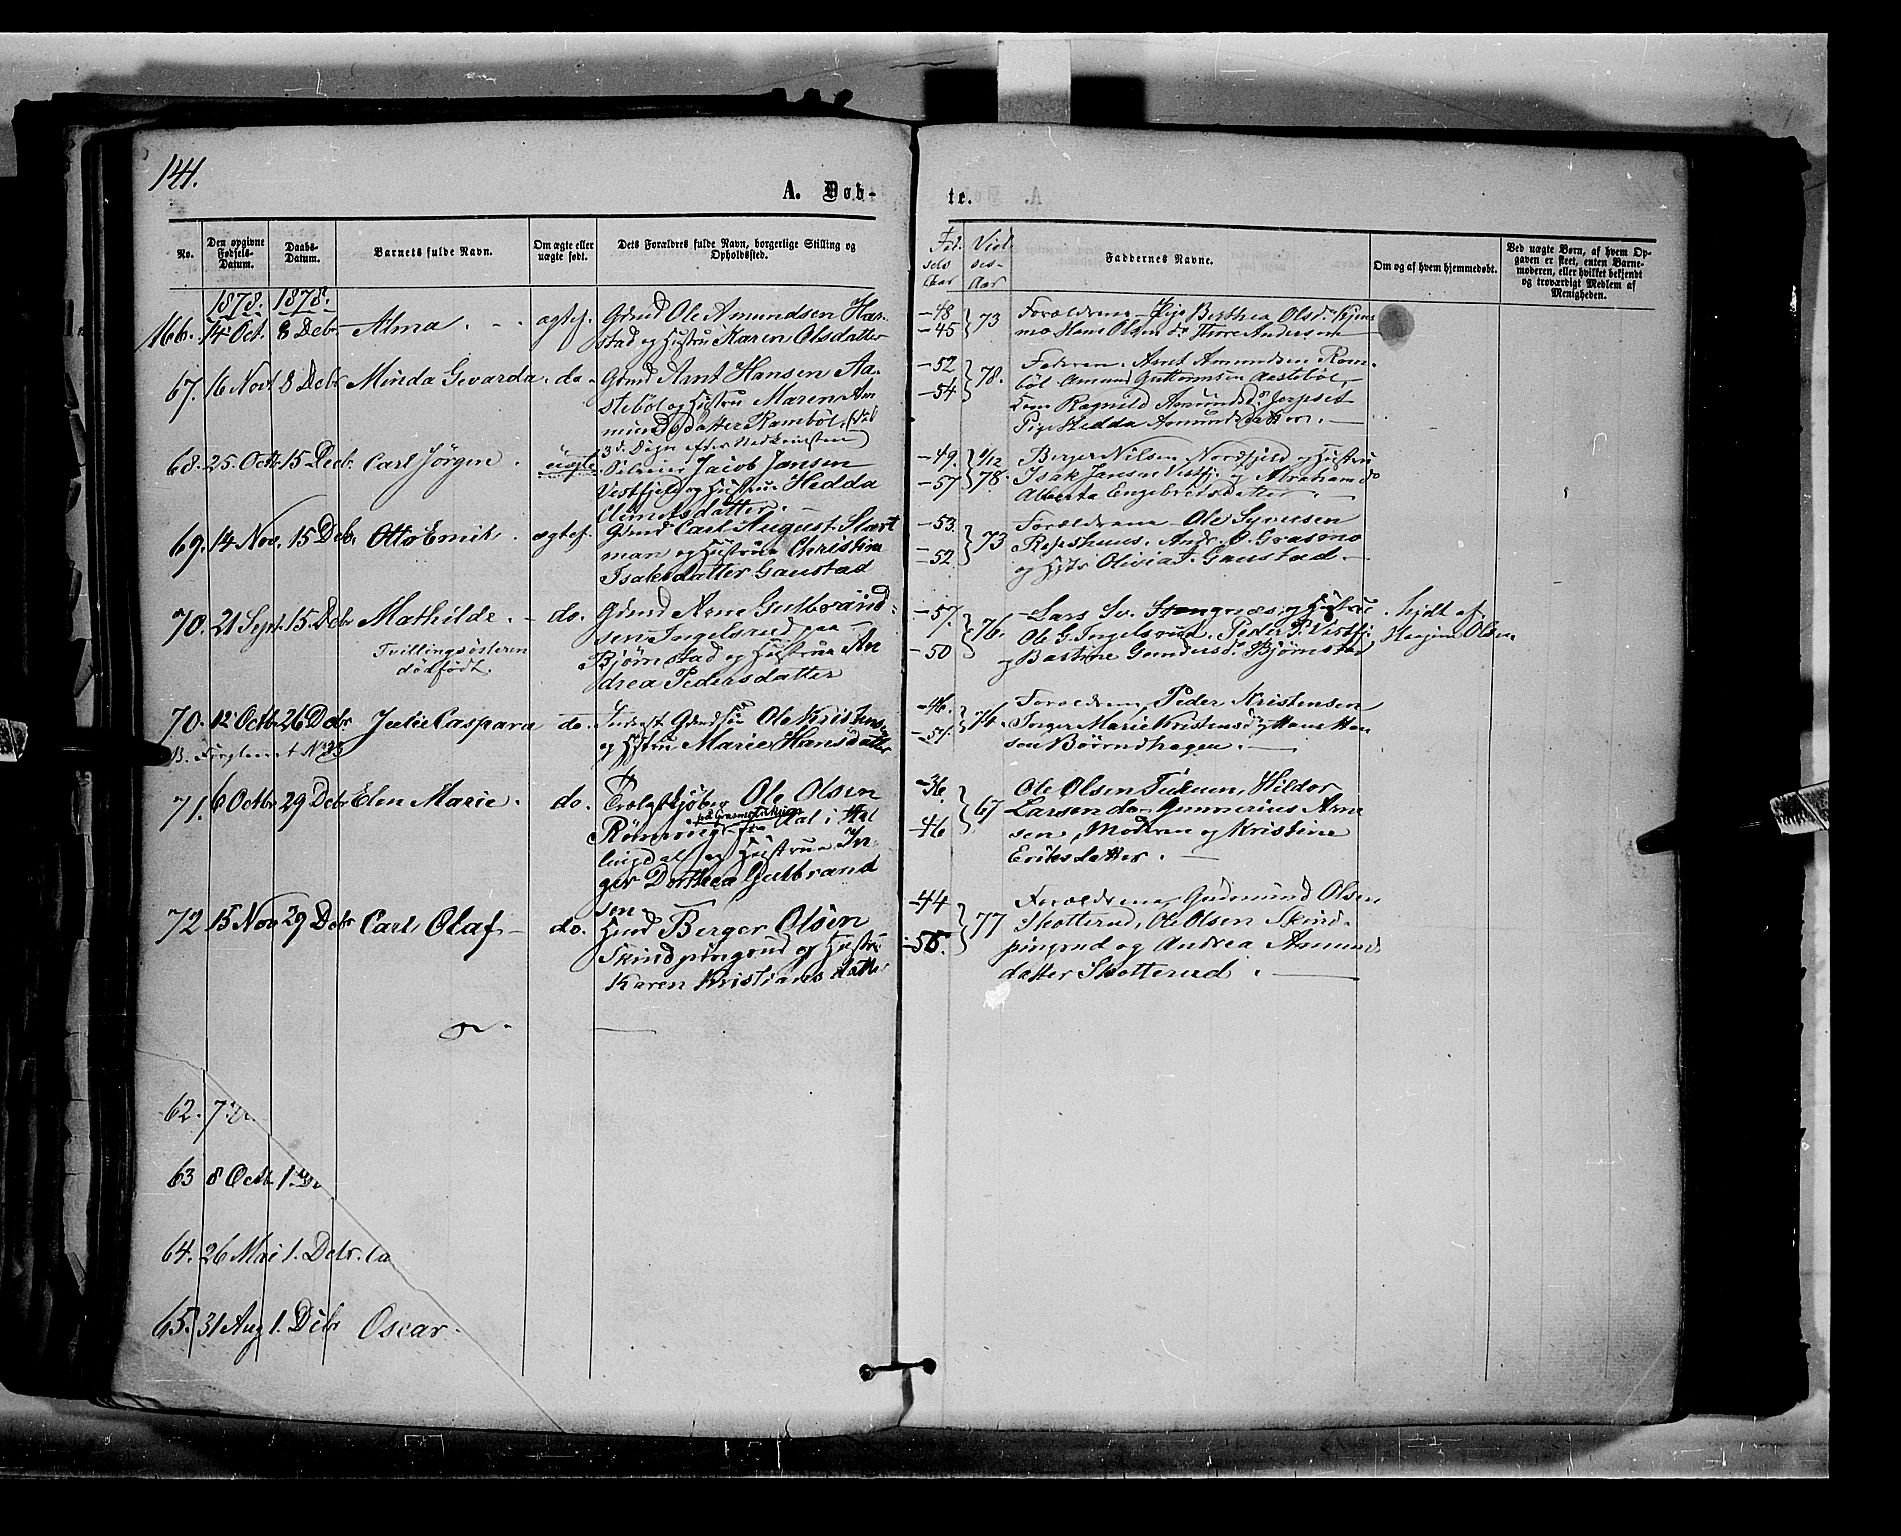 141.
A. Døb-
te.
No.
Den opgivne Fødsels-Datum.
Daabs-Datum.
Barnets fulde Navn.
Om ægte eller uægte født.
Dets Forældres fulde Navn, borgerlige Stilling og Opholdssted.
Fød-sels Aar
Viel-ses-Aar
Faddernes Navne.
Om og af hvem hjemmedøbt.
Ved uægte Børn, af hvem Opgaven er skeet, enten Barnemoderen, eller hvilket bekjendt og troværdigt Medlem af Menigheden.
1878. 1878.
166. 14 Oct. 8 Debr Alma. ægtef. Grmd Ole Amundsen Har-
stad og Hustru Karen Olsdatter
-48
-45 } 73
Forældrene - Pige Berthea Olsdr
Hans Olsen do Thore Andersen
67. 16 Novr 8 Debr Minda Gevarda. do. Grmd Arnt Hansen Aa-
stebøl og Hustru Maren Am-
mundsdatter Rambøl.
-52
-54 } 78.
Faderen. Arnt Amundsen Ram-
bøl Amund Guttormsen Aastebøl,
Kone Ragnild Amundsdr
Pige Hedda Amundsdatter.
68. 25. Octbr 15 Decbr Carl Jörgen. uægte
3d. Dagn efter Nedkomsten
Jacob Jansen
Vestfjeld og Hustrue Hedda
Clemetsdatter.
-49.
-57 } 1/12 78.
Berger Nilsen Nordfjeld og Hustru
Isak Jansen Vestfj. og
Alberta Engebretsdatter.
69. 14 Nov. 15 Debr Otto Emil. ægtef. Grmd Carl August Start
man og Hustrue Christine
Isaksdatter Gaustad
-53.
-52 } 73
Forældrene - Ole Syversen
Repshuus. Andr. Grasmo
og Olivia I. Gaustad.
70. 21 Sept. 15 Debr Mathilde. do. Grmd Arne Gulbrand-
sen Ingelsrud paa
Tvillingsösteren
dödfödt.
Bjørnstad og Hustrue An
drea Pedersdatter
-57.
-50 } 76.
Lars Sv. og Hustrue
Ole G. Ingelsrud. Peder P. Vestfj.
og Bastine Gundersdr Bjørnstad
hjdt af
Olsen
70. 12 Octbr 26 Debr Julie Caspara do. Grmdsøn Ole Kristens.
og Hstru Marie Hansdatter
-46.
-51. } 76.
Forældrene, Peder Kristensen
Inger Marie Kristensdr og Hans Han
sen Börrudhagen.
71. 6 Octbr 29 Debr Elen Marie. do. Ole Olsen
i Hal
lingdal og Hustrue In-
ger Dorthea Gulbrand
sen.
-36.
-46 } 67
Ole Olsen, Hildor
Larsen do Gunnerius Arne
sen, Moderen og Kristine
Eriksdatter.
72 15 Nov 29 Debr Carl Olaf do. Hmd Berger Olsen
Skindpungrud og Hustru
Karen Kristiansdatter
-44
-55. } 77
Forældrene, Gudmund Olsen
Skotterud, Ole Olsen Skind-
pungrud og Andrea Amunds
datter Skotterud.
62. 7
63 8 Octb 1.
64. 26 Mai 1. Debr. La
65. 31 Aug 1. Debr Oscar.